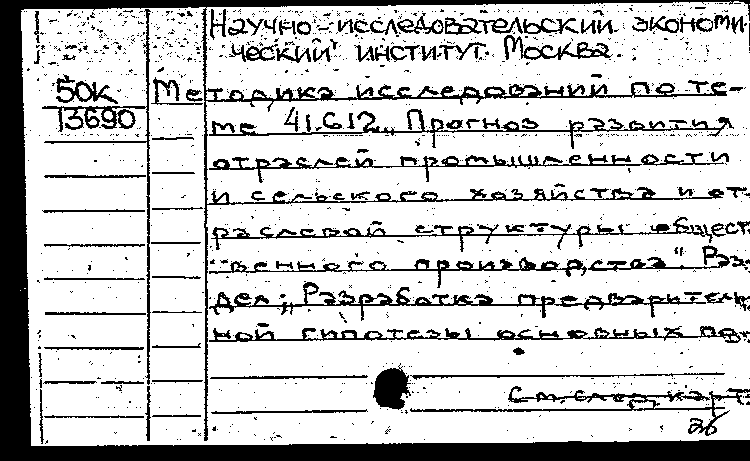 Научно-исследовательский экономи-
ческий институт. Москва.
50К Методика исследований по те-
13690 ме 41.6.12 „Прогноз развития
отраслей промышленности
и сельского хозяйства и от-
раслевой структуры общест-
венного производства". Раз-
дел: „Разработка предваритель-
ной гипотезы основных
См. след. карт.